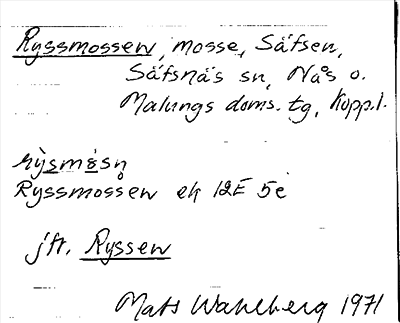 Ryssmossen, mosse, Säfsen,
Säfsnäs sn, Nås o.
Malungs doms. tg, Kopp.l.
rỳsmåsn̥
Ryssmossen ek 12E 5e
jfr. Ryssen
Mats Wahlberg 1971